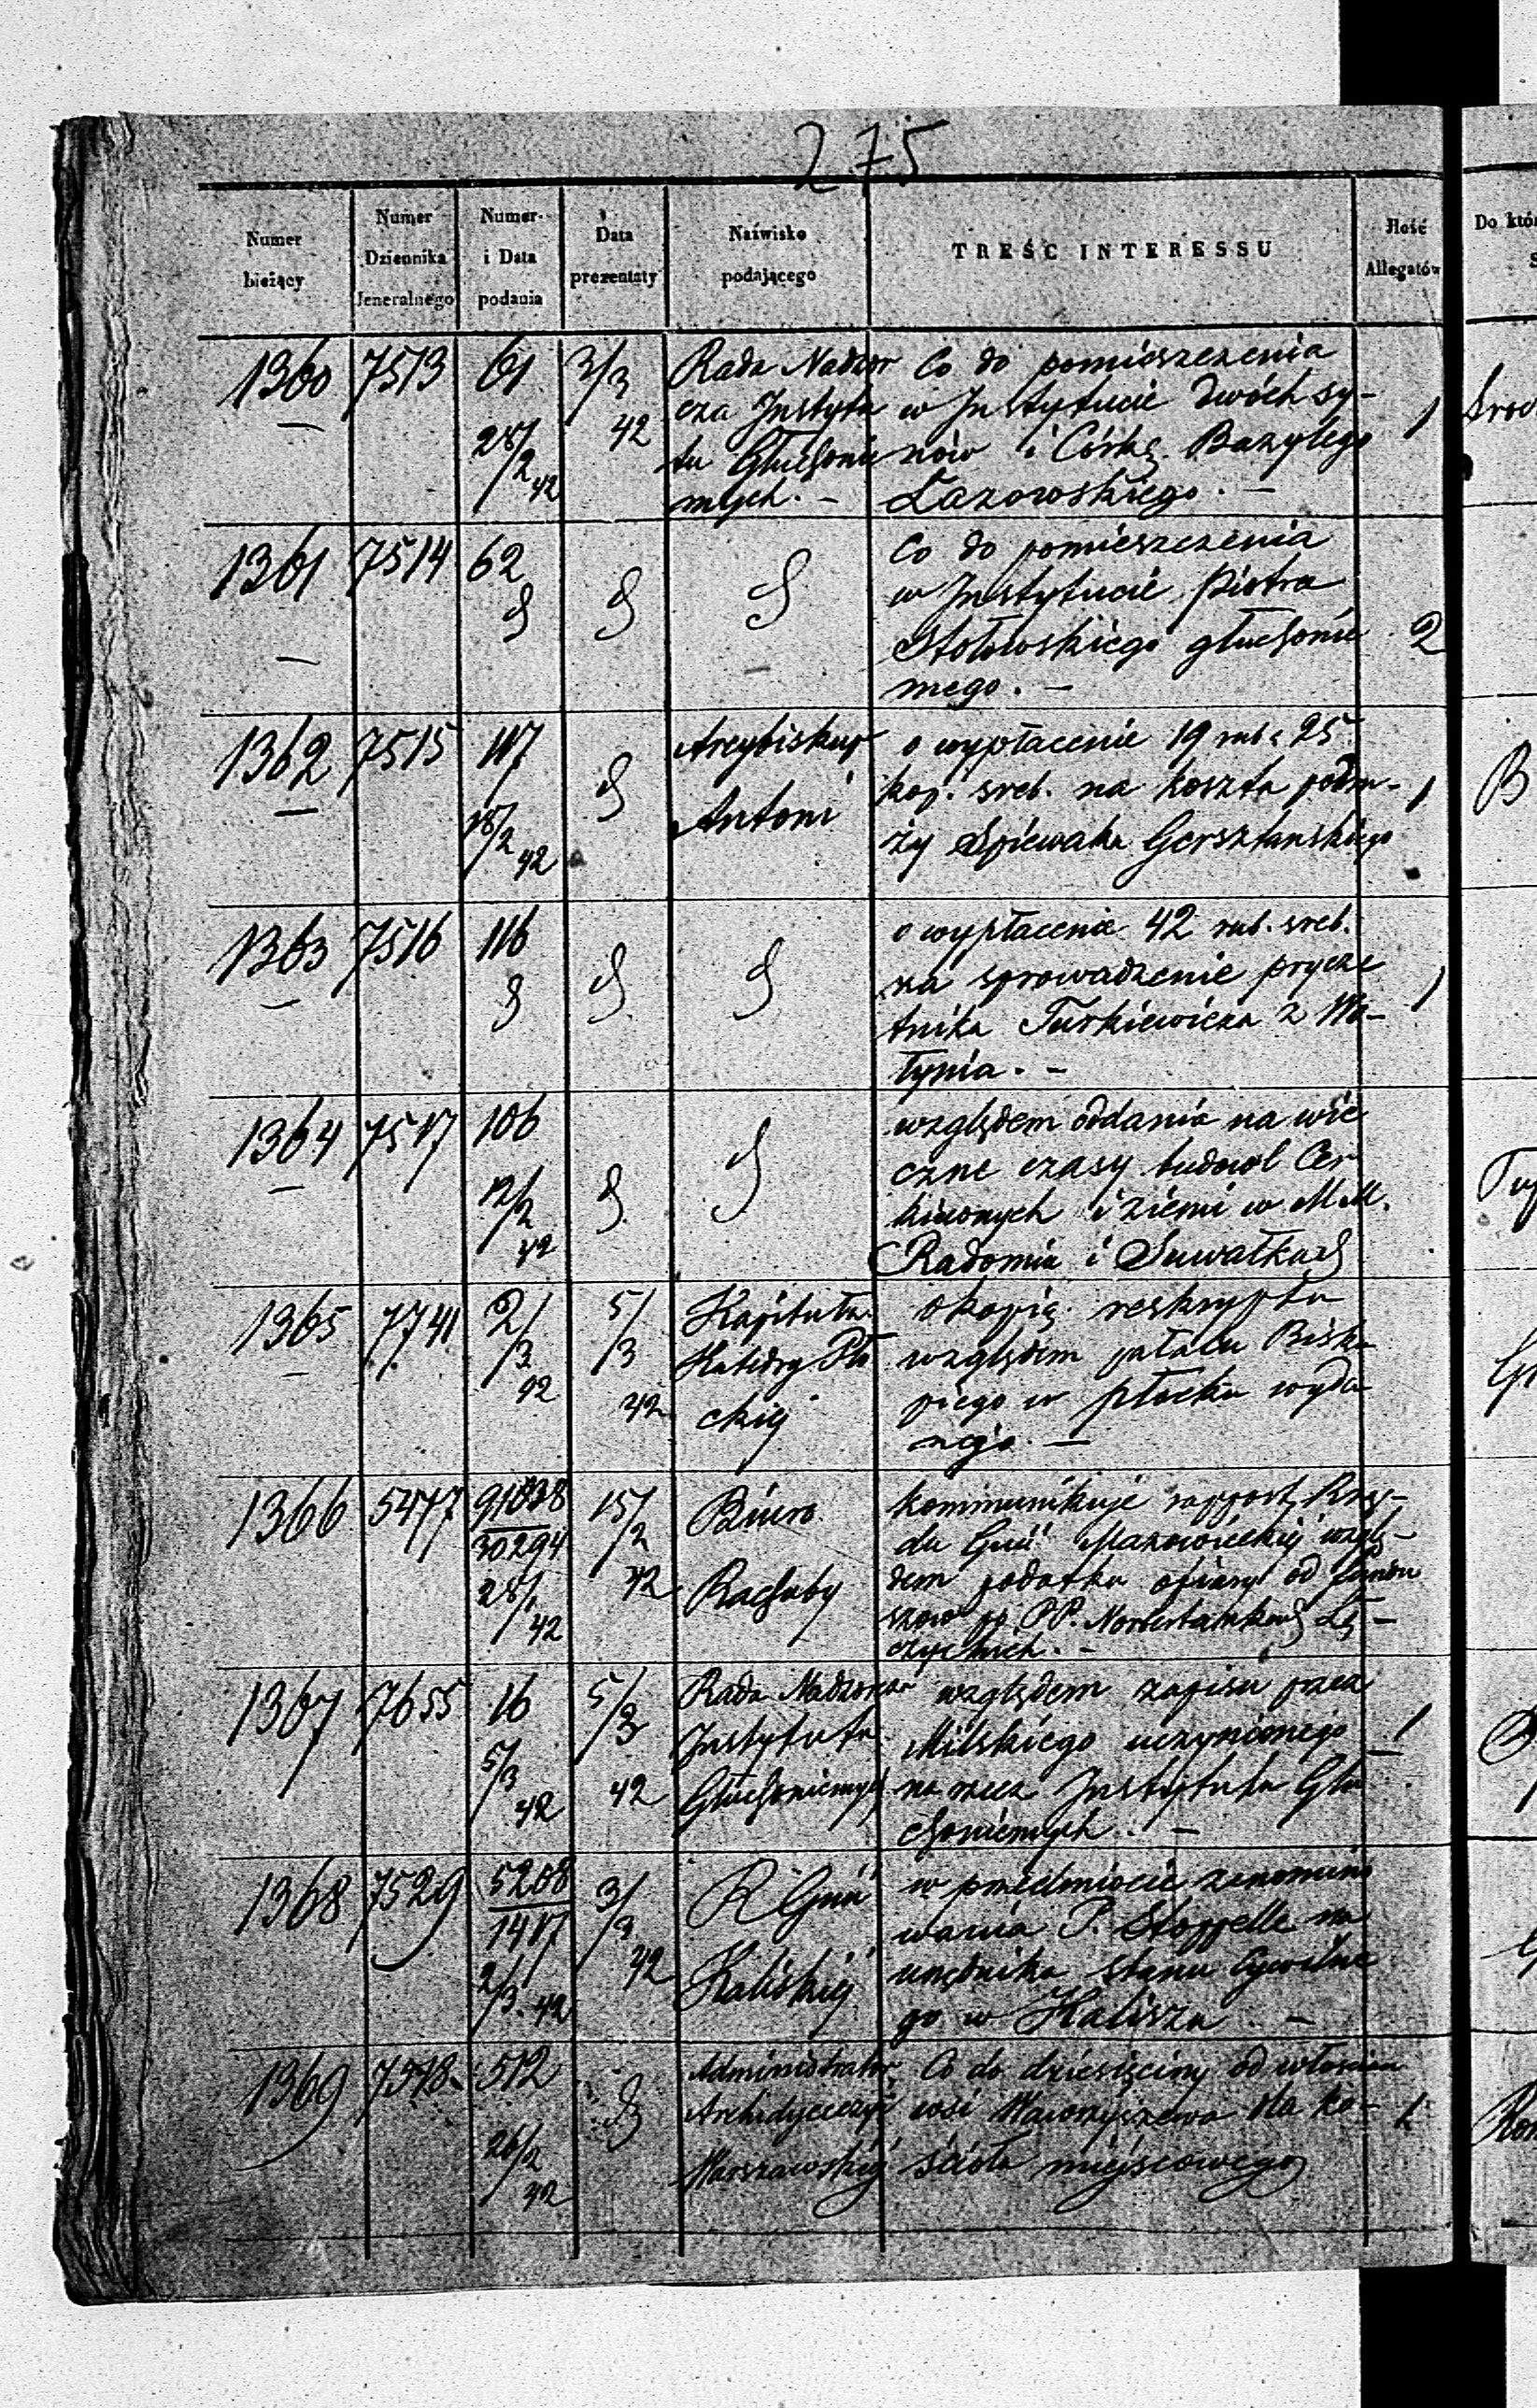 275
Numer bieżący
Numer Dziennika Jeneralnego
Numer i Data podania
Data prezentaty
Naźwisko podającego
TREŚĆ INTERESSU
Ilość Allegatów
Do któ
1360 7513 61 28/2 42 3/3 42
Rada Nadzor
cza Instytu
tu Głuchonie
mych. -
Co do pomieszczenia
w Instytucie dwóch sy-
nów i Córkę Bazylego
Łazowskiego. -
1
1361 7514 62
Co do pomieszczenia
w Instytucie Piotra
głuchonie
mego. -
2
1362 7515 117 18/2 42
Arcybiskup
Antoni
o wypłacenie 19 rub. 25
kop. sreb. na koszta podró-
ży Śpiewaka Gersztanskiego
1
B
1363 7516 116
o wypłacenie 42 rub. sreb.
za sprowadzenie prycze
tnika Turkiewicza z Wo-
łynia. -
1
1364 7517 106 12/2 42
względem oddania na wie
czne czasy budowl Cer
kiewnych i ziemi w M.M.
Radomiu i Suwałkach
1365 7741 2/3 42 5/3 42
Kapituła
Katedry Pło
ckiej
o kopię reskryptu
względem pałacu Bisku
piego w Płocku wyda
nego. -
1366 5477 91838 30294 28/1 42 15/2 42
Biuro
Rachuby
kommunikuje rapport Rzą-
du Gub Mazowieckiej wzglę-
dem podatku ofiary od
po PP. Norbertankach Łę-
czyckich. -
1367 7655 16 5/3 42 5/3 42
Rada Nadzorcza
Instytutu
Głuchoniemych
względem zapisu przez
Milskiego uczynionego
na rzecz Instytutu Głu
choniemych. -
1
1368 7529 5208 1417 2/3 42 3/3 42
R Gub
Kaliskiej
w przedmiocie zanomino
wania P. Stoppelle na
urzędnika stanu Cywilne
go w Kaliszu. -
1369 7518 512 26/2 42
Administrator
Archidyecezyi
Warszawskiej
Co do dziesięciny od włościan
wsi Wawrzyszewa dla ko-
ścioła miejscowego
1